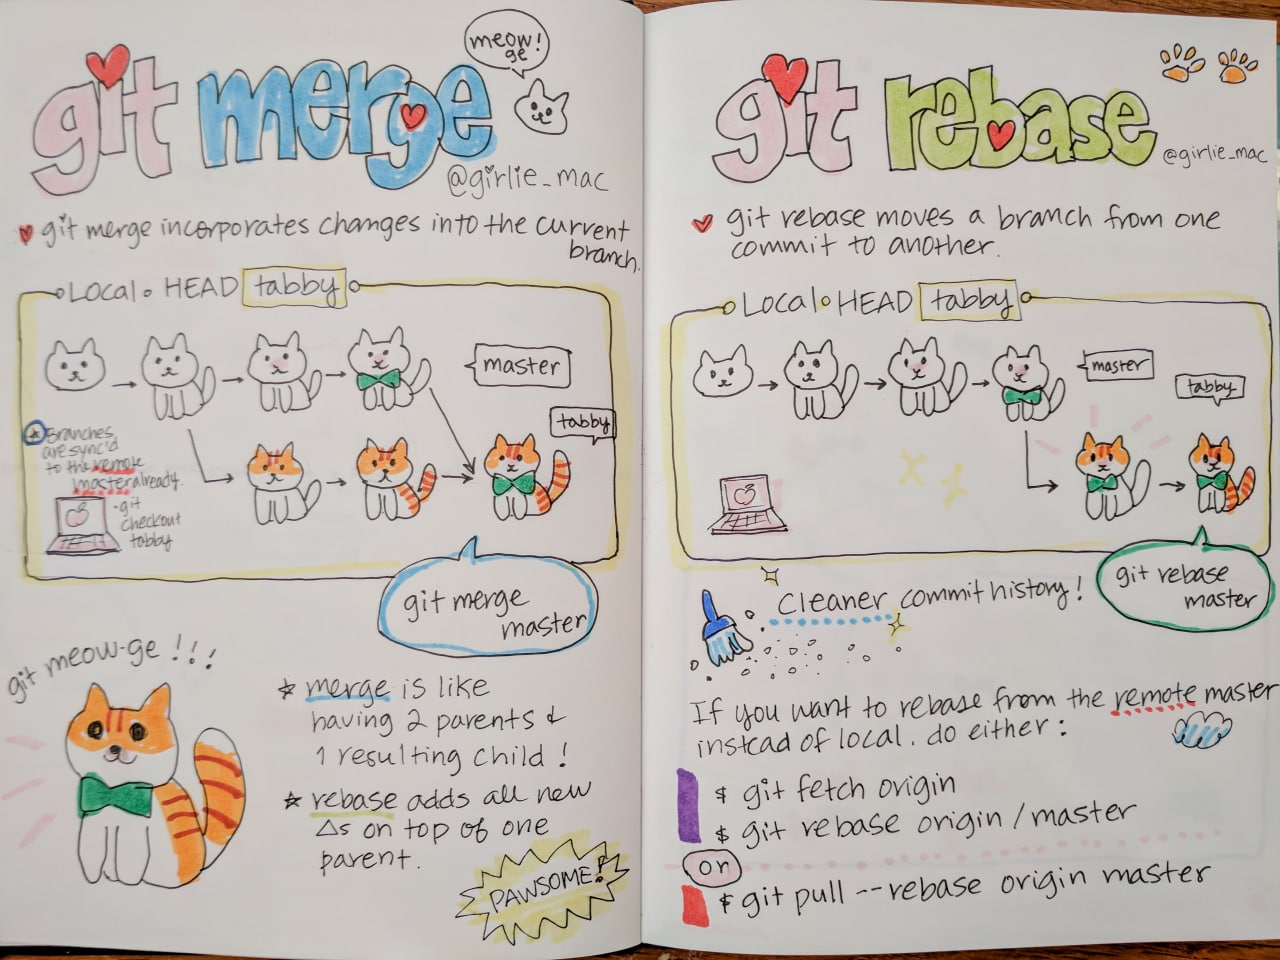 git merge
meow!
ge
@girlie_mac
git merge incorporates changes into the current
branch.
Local HEAD tabby
master
tabby
Branches
are sync'd
to the remote
master already.
git
checkout
tabby
git merge
master
git meow-ge !!!
merge is like
having 2 parents &
1 resulting child!
rebase adds all new
Δs on top of one
parent.
PAWSOME!
git rebase
@girlie_mac
git rebase moves a branch from one
commit to another.
Local HEAD tabby
master
tabby
git rebase
master
Cleaner commit history!
If you want to rebase from the remote master
instead of local. do either:
$ git fetch origin
$ git rebase origin/master
or
$ git pull --rebase origin master